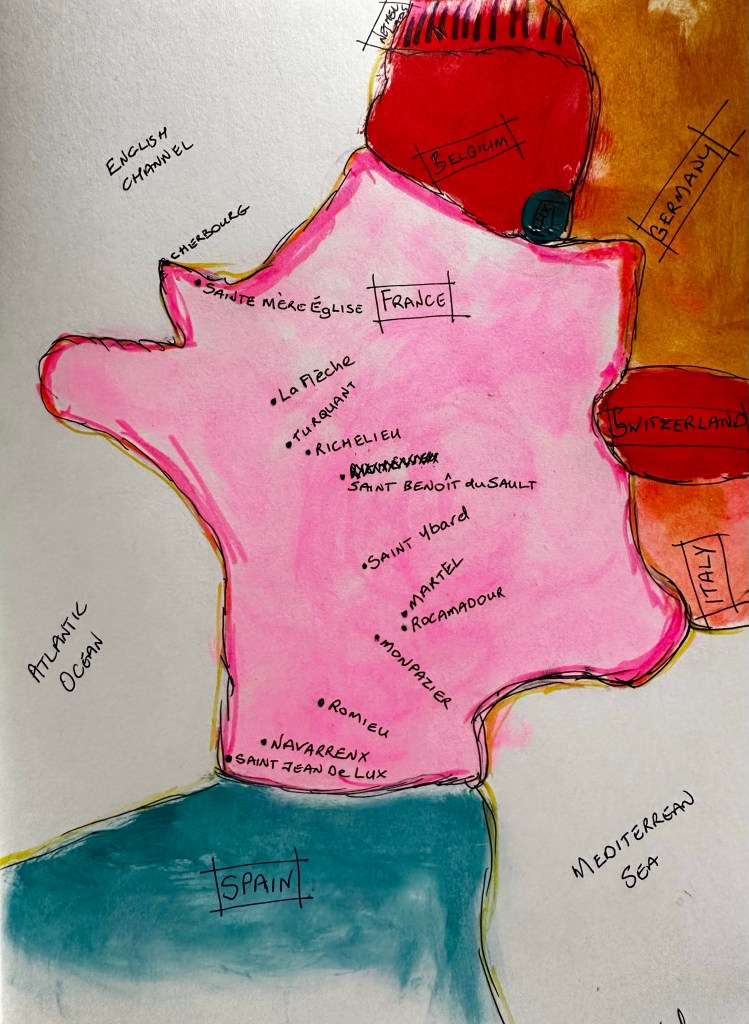 NETHER
LANDS
BELGIUM
LUX
GERMANY
ENGLISH
CHANNEL
CHERBOURG
SAINTE MÈRE ÉgLISE
FRANCE
La Flèche
TURQUANT
RICHELIEU
SAINT BENOÎT du SAULT
SWITZERLAND
SAINT Ybard
ITALY
MARTEL
ROCAMADOUR
MONPAZIER
ATLANTIC
OCEAN
ROMIEU
NAVARRENX
SAINT JEAN De LUX
SPAIN
MEDITERREAN
SEA